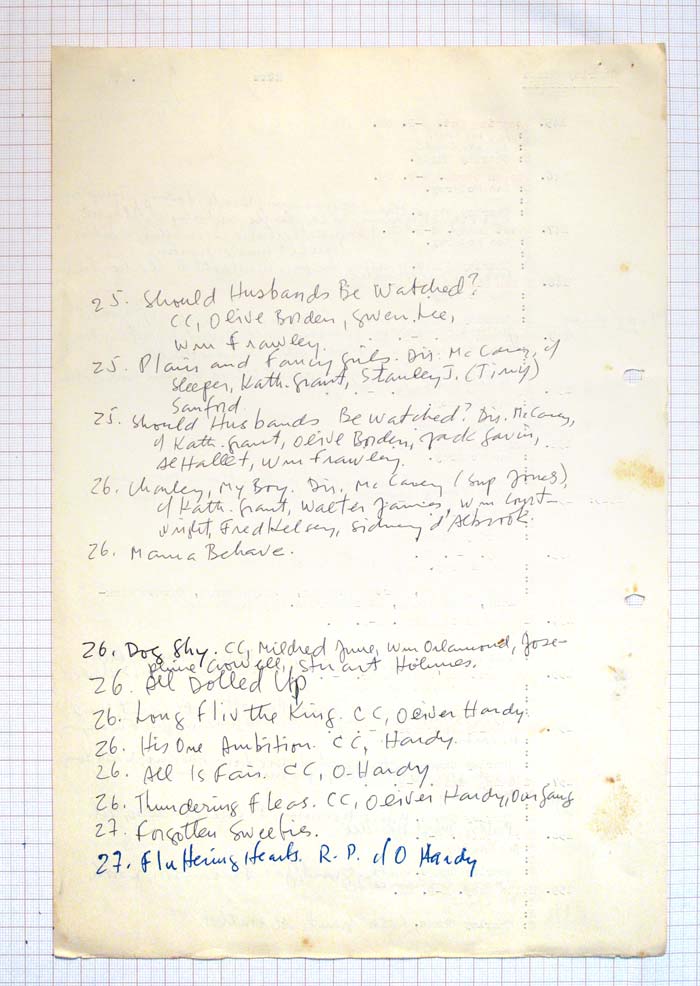 25. Should Husbands Be Watched?
CC, Olive Borden, Gwen. Lee,
Wm Frawley.
25. Plain and Fancy Girls. Dir. McCarey, c/
Sleeper, Kath. Grant, Stanley J. (Tiny)
Sanford
25. Should Husbands Be Watched? Dir. McCarey,
c/ Kath. Grant, Olive Borden, Jack Gavin,
Al Hallet, Wm Frawley.
26. Charley, My Boy. Dir. McCarey (Sup Jones),
c/ Kath. Grant, Walter James, Wm Court-
wright, Fred Kelsey, Sidney d'Albrook.
26. Mama Behave.
26. Dog Shy. CC, Mildred June, Wm Orlamond, Jose-
phine Crowell, Stuart Holmes.
26. All Dolled Up
26. Long Fliv the King. CC, Oliver Hardy.
26. His One Ambition. CC, Hardy.
26. All Is Fair. CC, O. Hardy
26. Thundering Fleas. CC, Oliver Hardy, Our Gang
27. Forgotten Sweeties.
27. Fluttering Hearts. R. P. c/ O Hardy